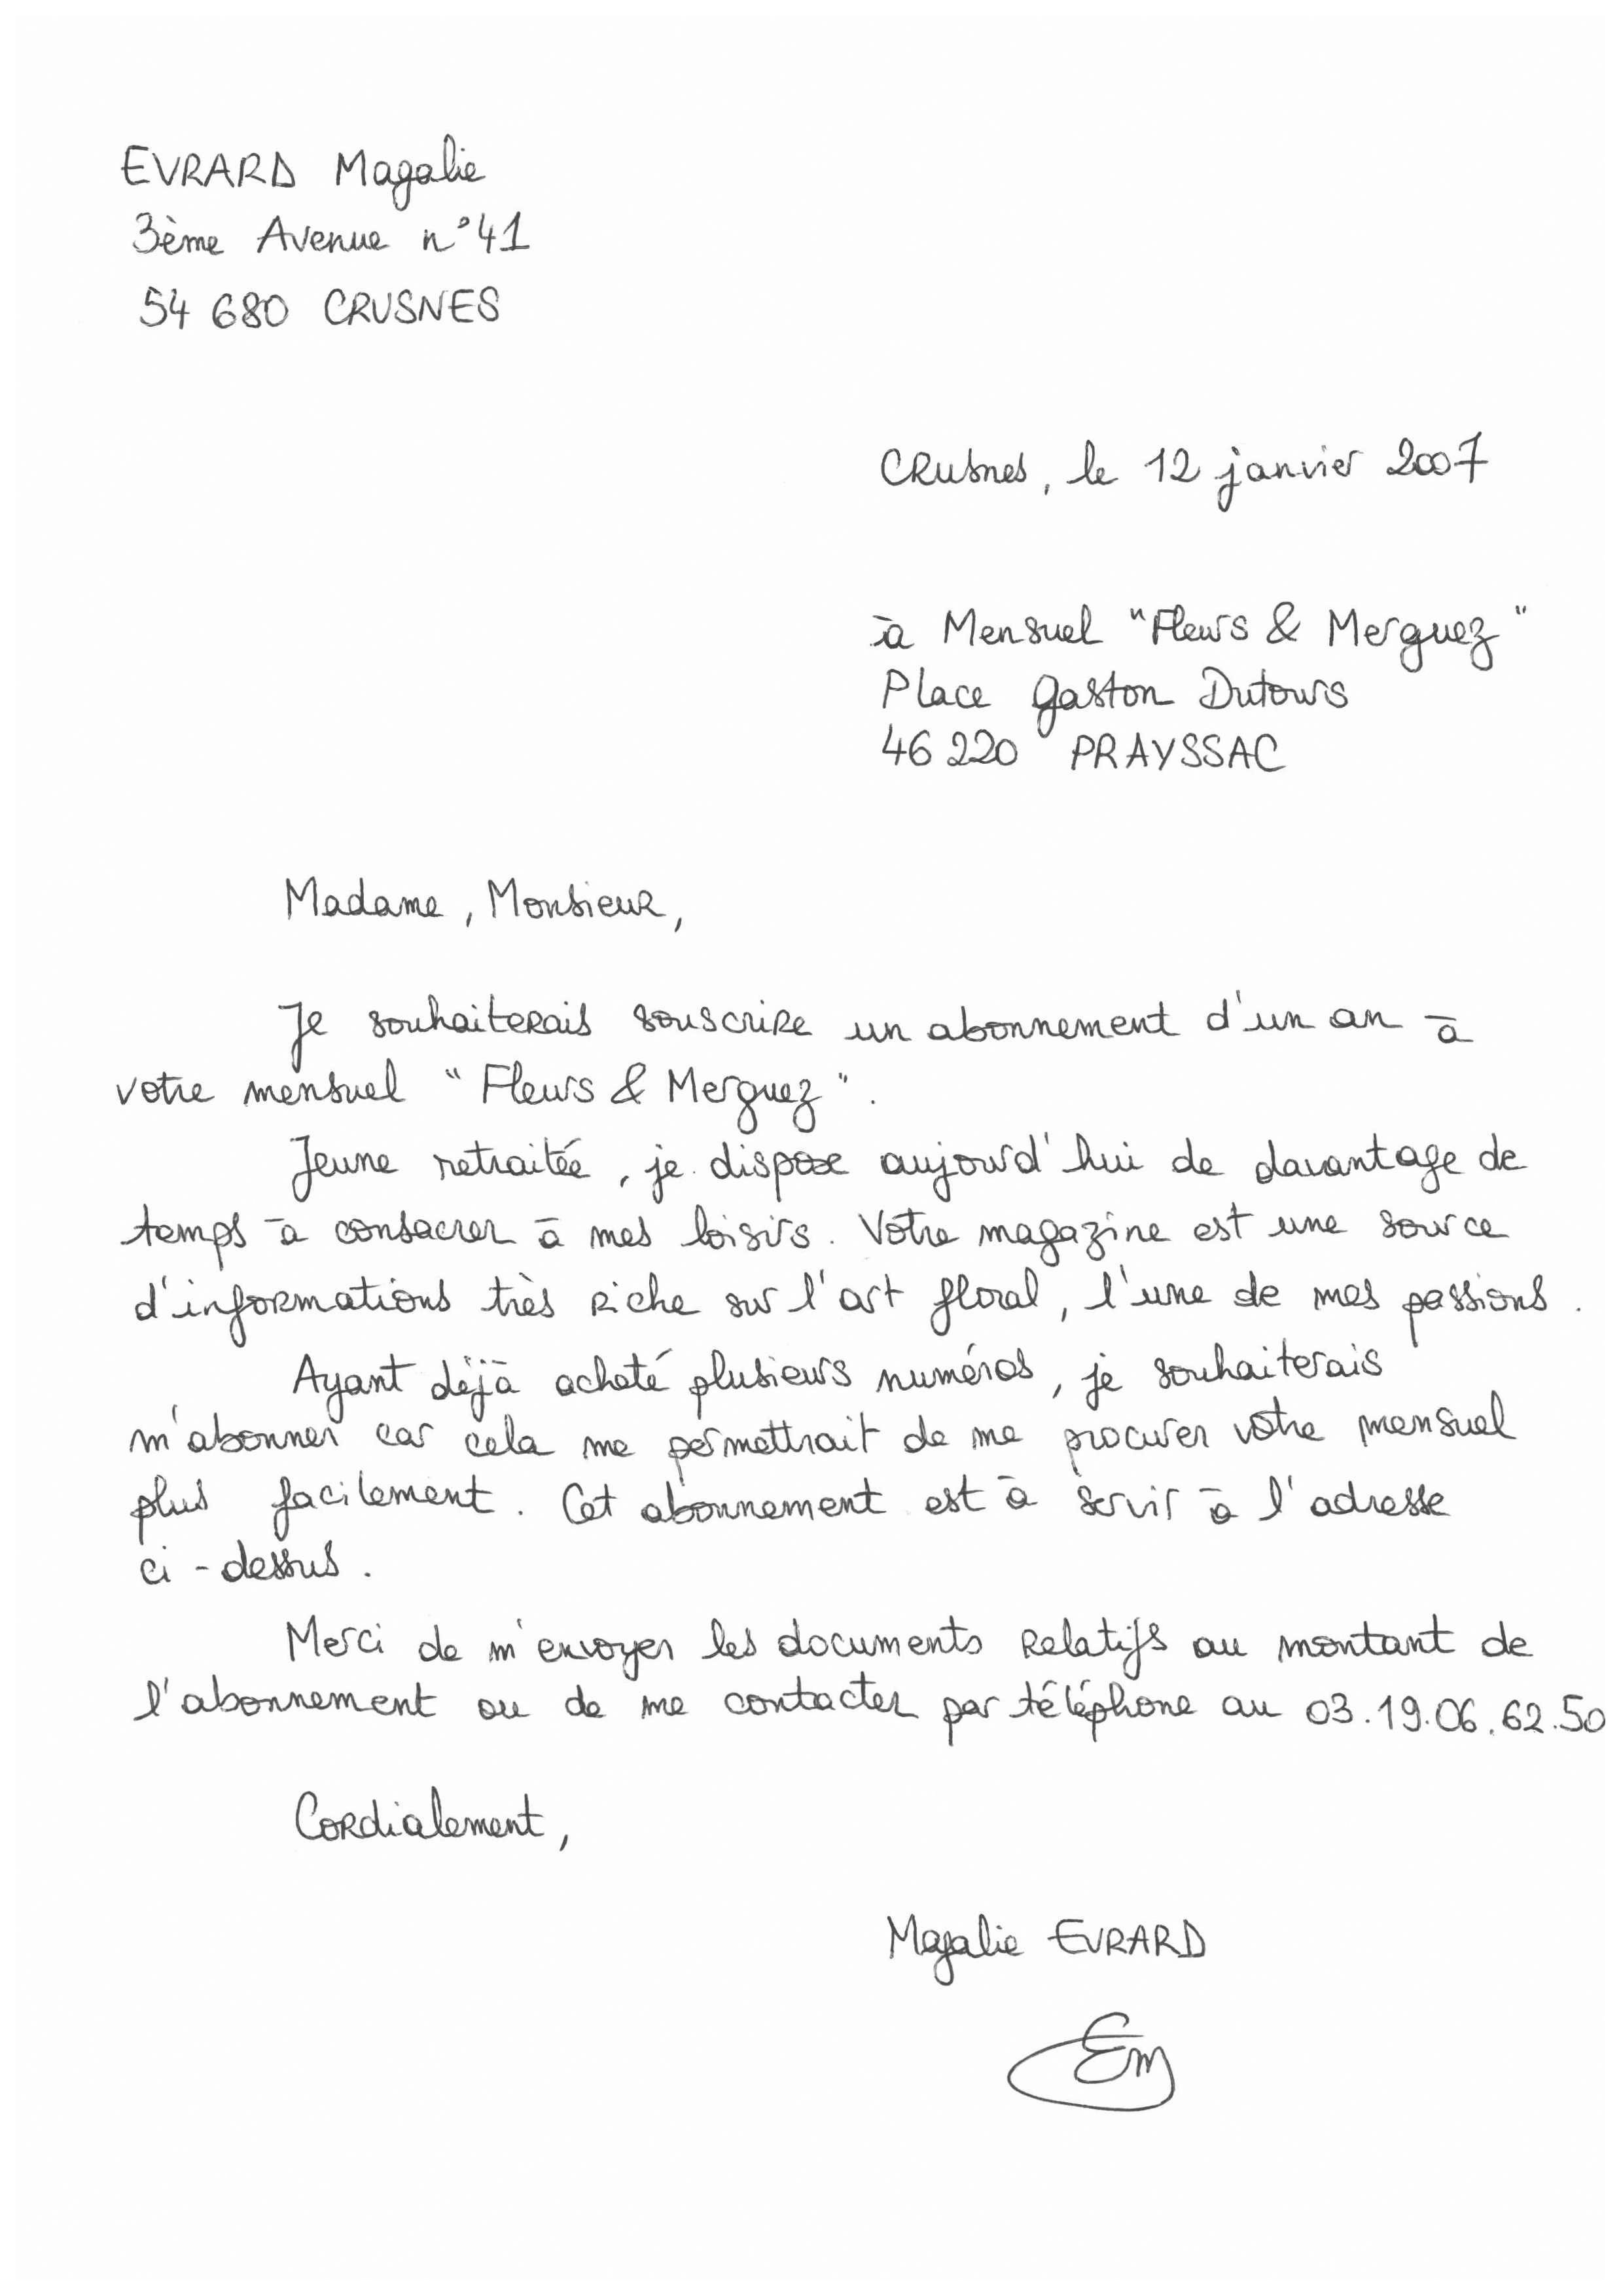 EVRARD Magalie
3ème Avenue n°41
54 680 CRUSNES
CRusnes, le 12 janvier 2007
à Mensuel "Fleurs & Merguez"
Place Gaston Dutours
46 220 PRAYSSAC
Madame, Monsieur,
Je souhaiterais souscrire un abonnement d'un an à
votre mensuel "Fleurs & Merguez".
Jeune retraitée, je dispose aujourd'hui de davantage de
temps à consacrer à mes loisirs. Votre magazine est une source
d'informations très riche sur l'art floral, l'une de mes passions.
Ayant déjà acheté plusieurs numéros, je souhaiterais
m'abonner car cela me permettrait de me procurer votre mensuel
plus facilement. Cet abonnement est à servir à l'adresse
ci-dessus.
Merci de m'envoyer les documents relatifs au montant de
l'abonnement ou de me contacter par téléphone au 03.19.06.62.50
Cordialement,
Magalie EVRARD
Em